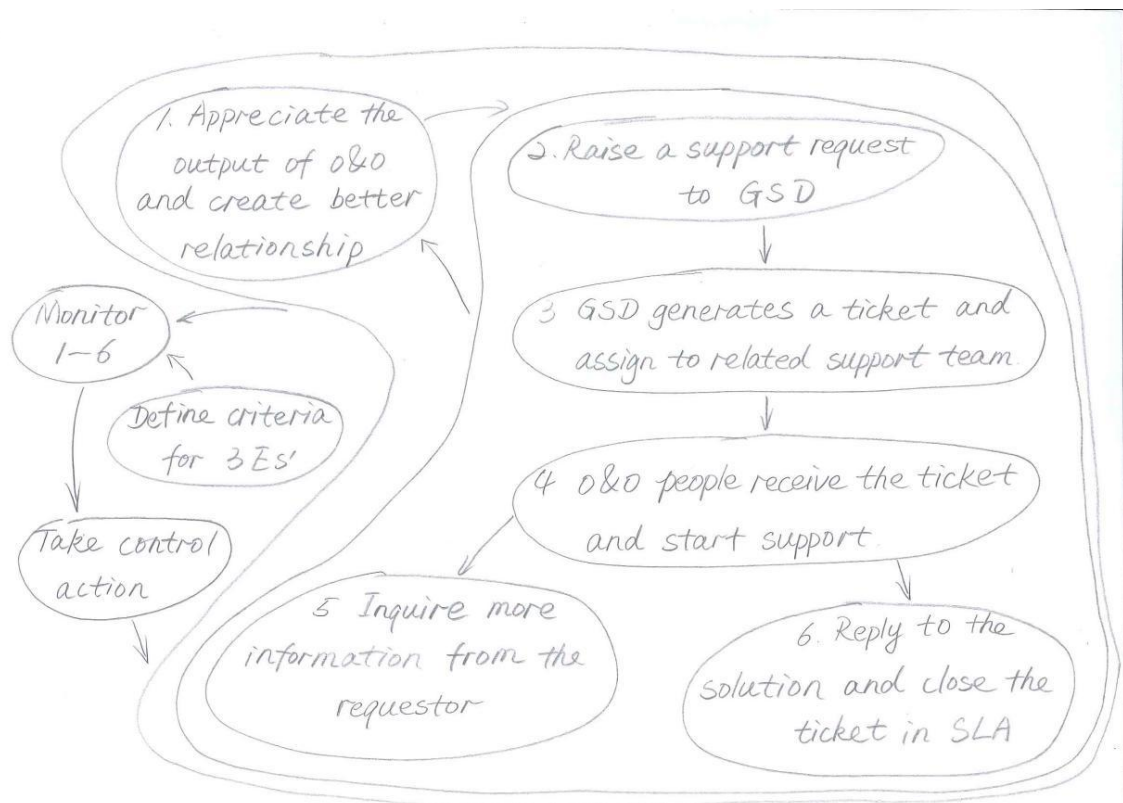 1. Appreciate the
output of o&o
and create better
relationship
2. Raise a support request
to GSD
3 GSD generates a ticket and
assign to related support team
4 o&o people receive the ticket
and start support
5 Inquire more
information from the
requestor
6. Reply to the
solution and close the
ticket in SLA
Monitor
1-6
Define criteria
for 3 Es'
Take control
action